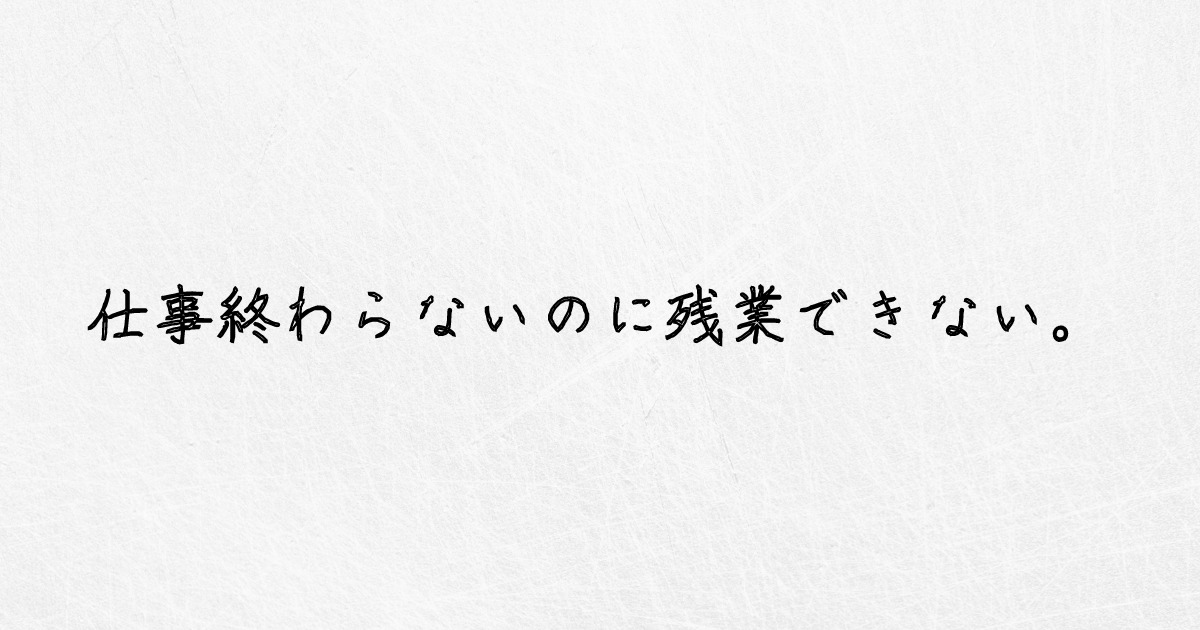 仕事終わらないのに残業できない。